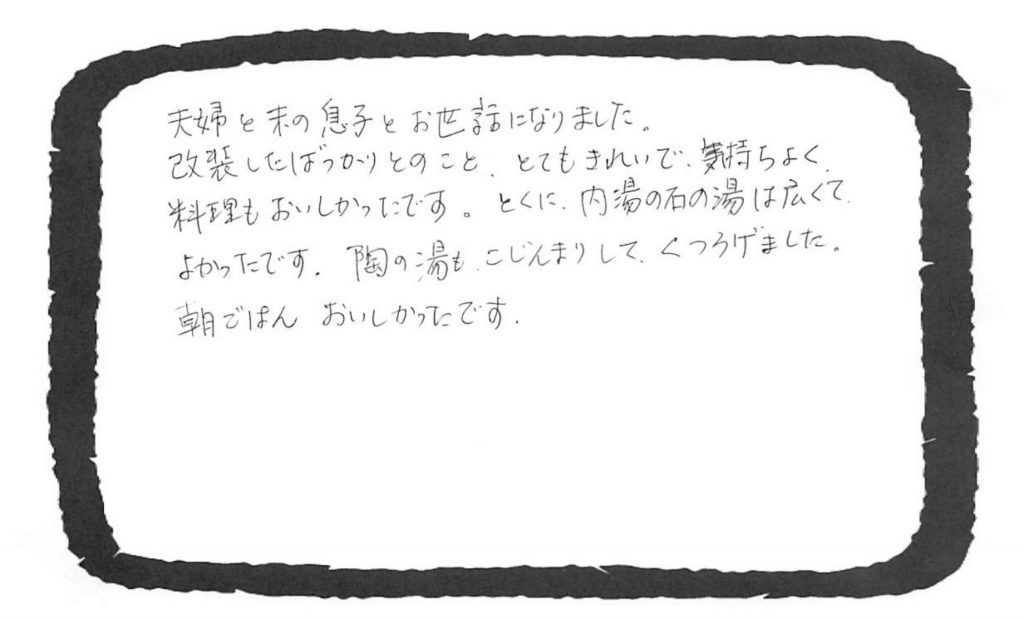 夫婦と末の息子とお世話になりました。
改装したばっかりとのこと、とてもきれいで、気持ちよく、
料理もおいしかったです。とくに、内湯の石の湯は広くて、
よかったです。陶の湯も、こじんまりして、くつろげました。
朝ごはん おいしかったです。